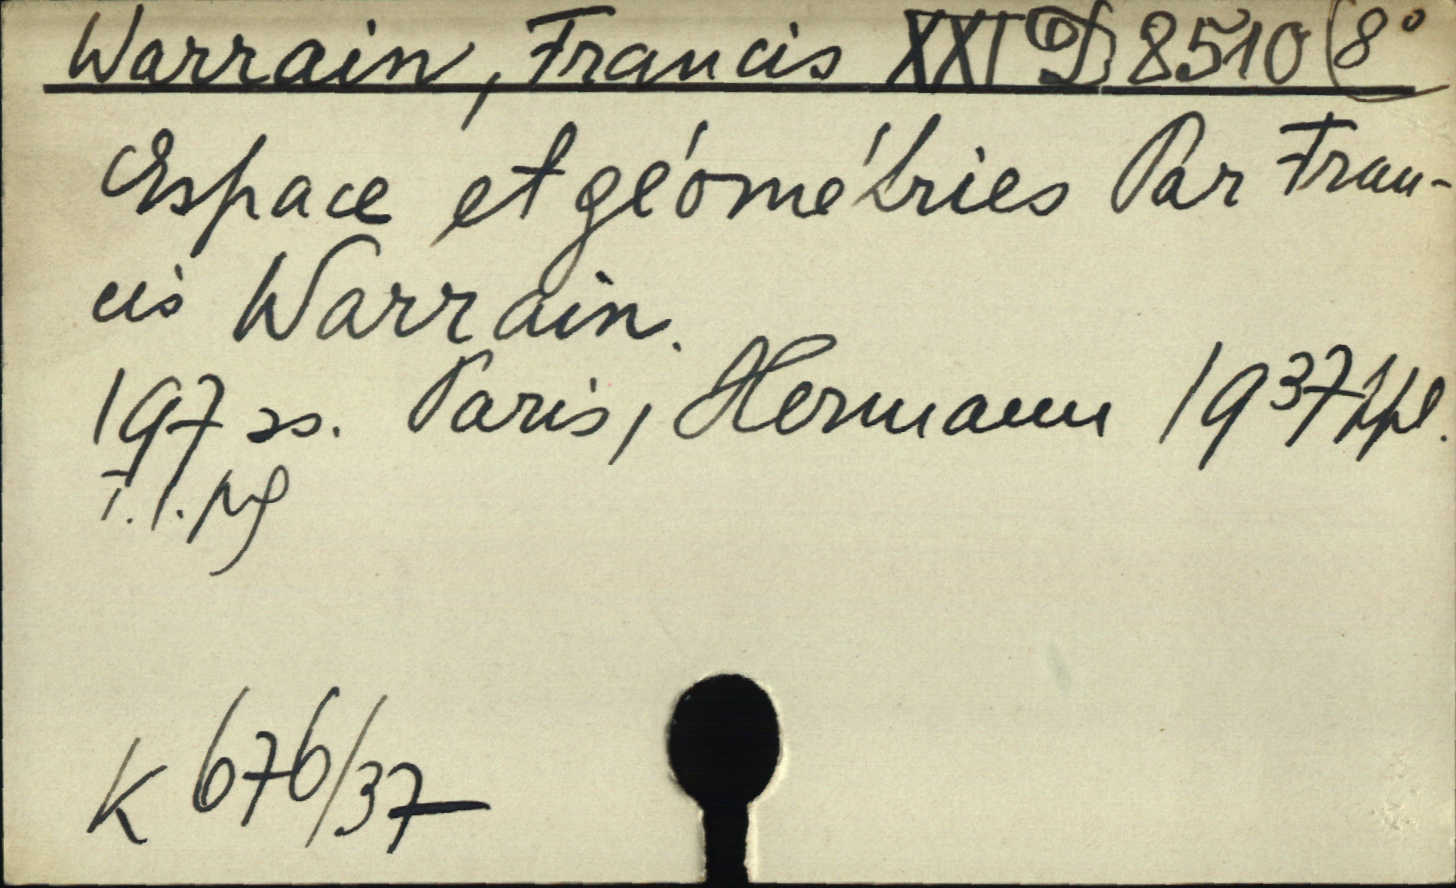 Warrain, Francis XXI D 8510 (8°
Espace et géométries Par Fran-
cis Warrain.
197 ss. Paris, Hermann 1937
K 676/37